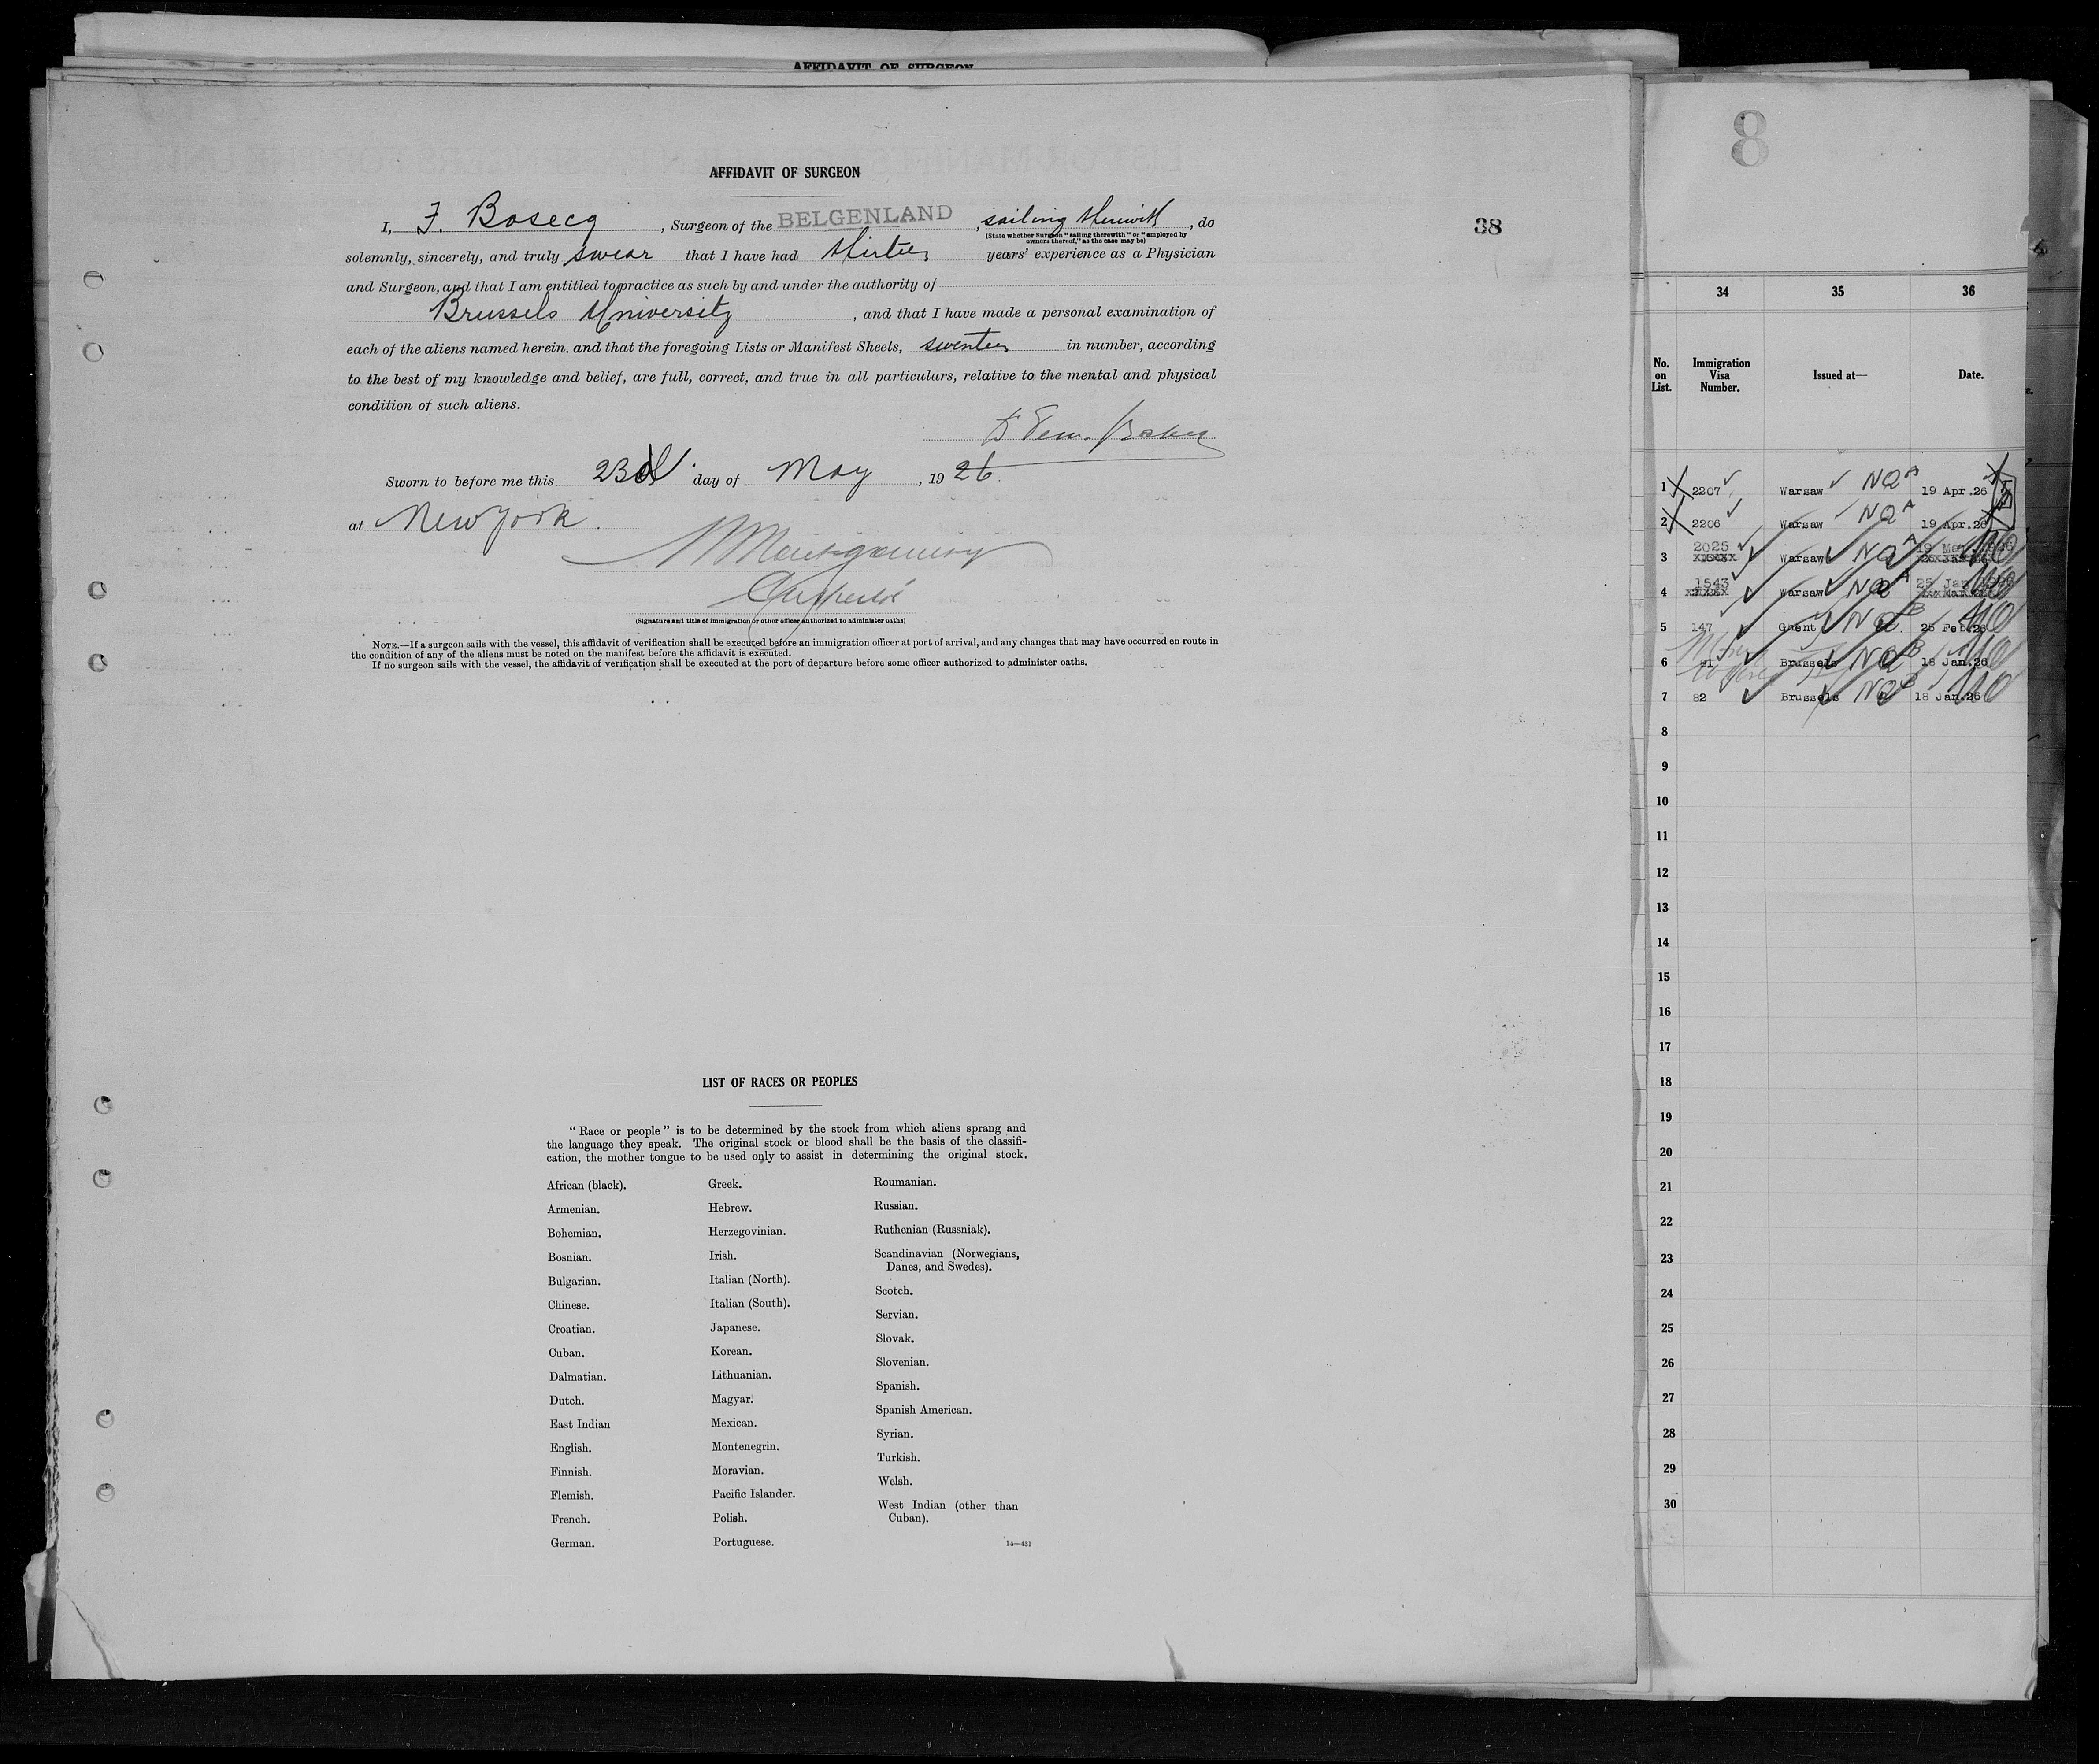 AFFIDAVIT OF SURGEON
AFFIDAVIT OF SURGEON
I, F. Bosecq, Surgeon of the BELGENLAND, sailing therewith, do
(State whether Surgeon "sailing therewith" or "employed by
owners thereof," as the case may be)
solemnly, sincerely, and truly swear that I have had years' experience as a Physician
and Surgeon, and that I am entitled to practice as such by and under the authority of
Brussels University, and that I have made a personal examination of
each of the aliens named herein. and that the foregoing Lists or Manifest Sheets, in number, according
to the best of my knowledge and belief, are full, correct, and true in all particulars, relative to the mental and physical
condition of such aliens.
Sworn to before me this 23d day of May, 1926.
at New York.
Montgomery
(Signature and title of immigration or other officer authorized to administer oaths)
NOTE.—If a surgeon sails with the vessel, this affidavit of verification shall be executed before an immigration officer at port of arrival, and any changes that may have occurred en route in
the condition of any of the aliens must be noted on the manifest before the affidavit is executed.
If no surgeon sails with the vessel, the affidavit of verification shall be executed at the port of departure before some officer authorized to administer oaths.
38
LIST OF RACES OR PEOPLES
"Race or people" is to be determined by the stock from which aliens sprang and
the language they speak. The original stock or blood shall be the basis of the classifi-
cation, the mother tongue to be used only to assist in determining the original stock.
African (black).
Armenian.
Bohemian.
Bosnian.
Bulgarian.
Chinese.
Croatian.
Cuban.
Dalmatian.
Dutch.
East Indian
English.
Finnish.
Flemish.
French.
German.
Greek.
Hebrew.
Herzegovinian.
Irish.
Italian (North).
Italian (South).
Japanese.
Korean.
Lithuanian.
Magyar.
Mexican.
Montenegrin.
Moravian.
Pacific Islander.
Polish.
Portuguese.
Roumanian.
Russian.
Ruthenian (Russniak).
Scandinavian (Norwegians,
Danes, and Swedes).
Scotch.
Servian.
Slovak.
Slovenian.
Spanish.
Spanish American.
Syrian.
Turkish.
Welsh.
West Indian (other than
Cuban).
14—431
8
34 35 36
No. on List. Immigration Visa Number. Issued at— Date.
1 2207 Warsaw NQA 19 Apr.26
2 2206 Warsaw NQA 19 Apr.26
3 2025 Warsaw NQA 19
4 1543 Warsaw NQA 25 Jan
5 147 Ghent NQB 25 Feb.26
6 81 Brussels NQB 18 Jan.26
7 82 Brussels NQB 18 Jan.26
8
9
10
11
12
13
14
15
16
17
18
19
20
21
22
23
24
25
26
27
28
29
30